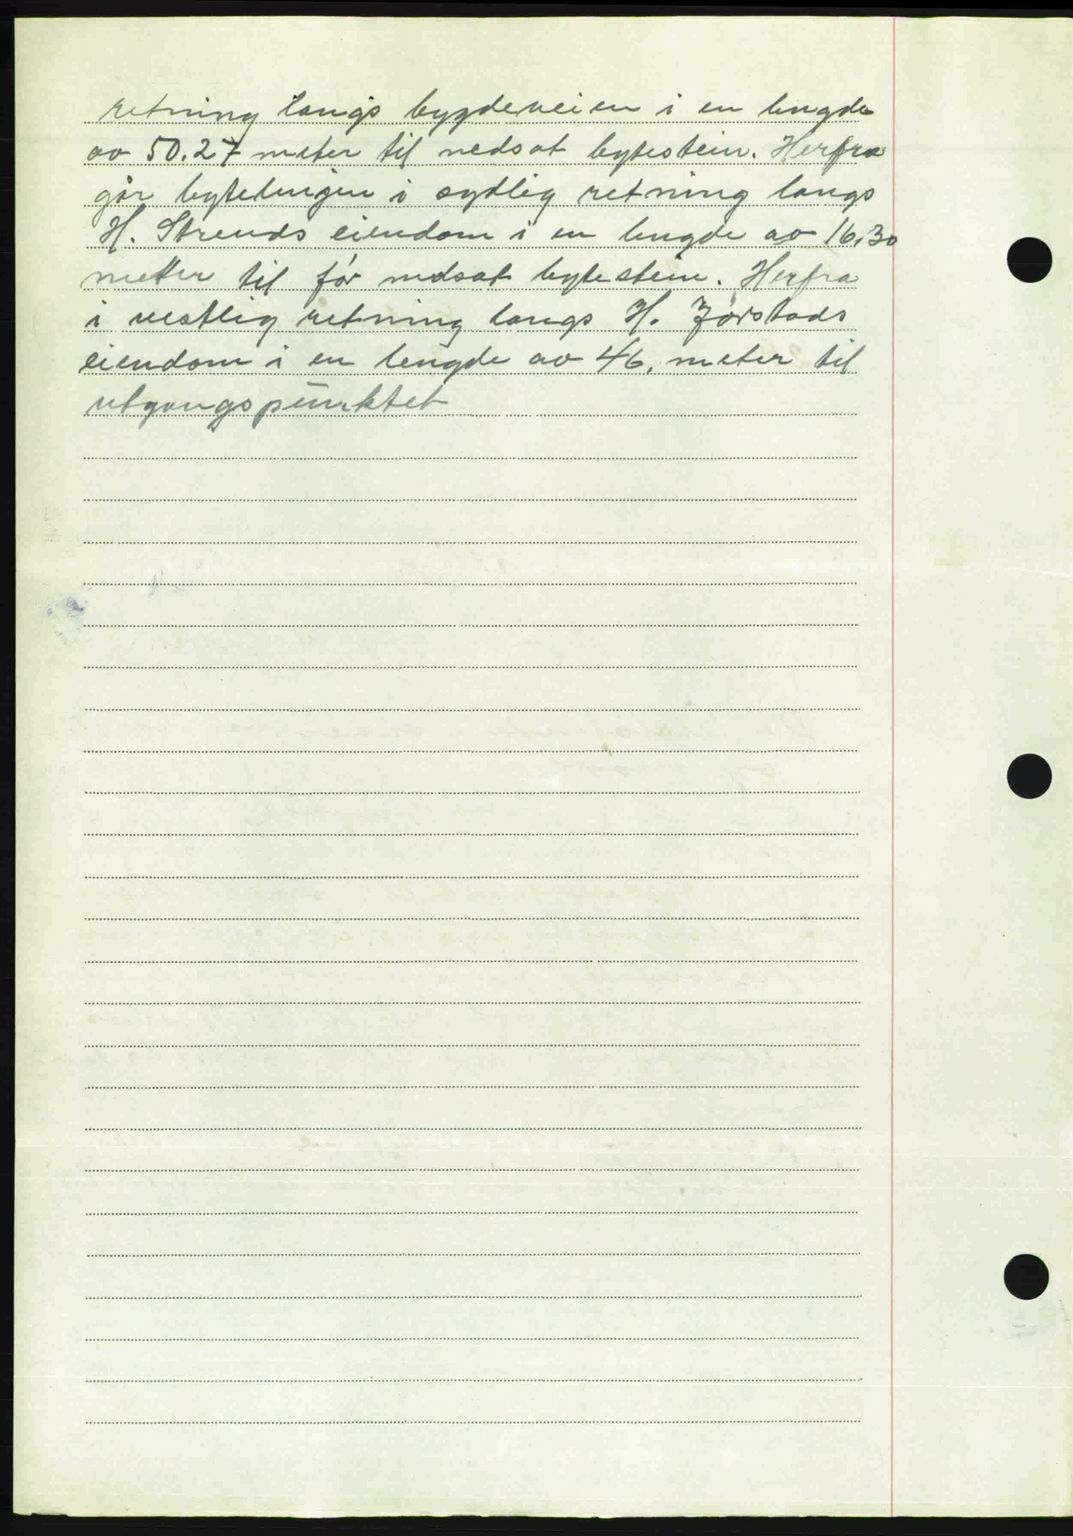 retning langs bygdeveien i en lengde
av 50.27 meter til nedsat bytestein. Herfra
går bytelinjen i sydlig retning langs
H. Strends eiendom i en lengde av 16,30
metter til før nedsat bytestein. Herfra
i vestlig retning langs H. Jørstads
eiendom i en lengde av 46, meter til
utgangspunktet